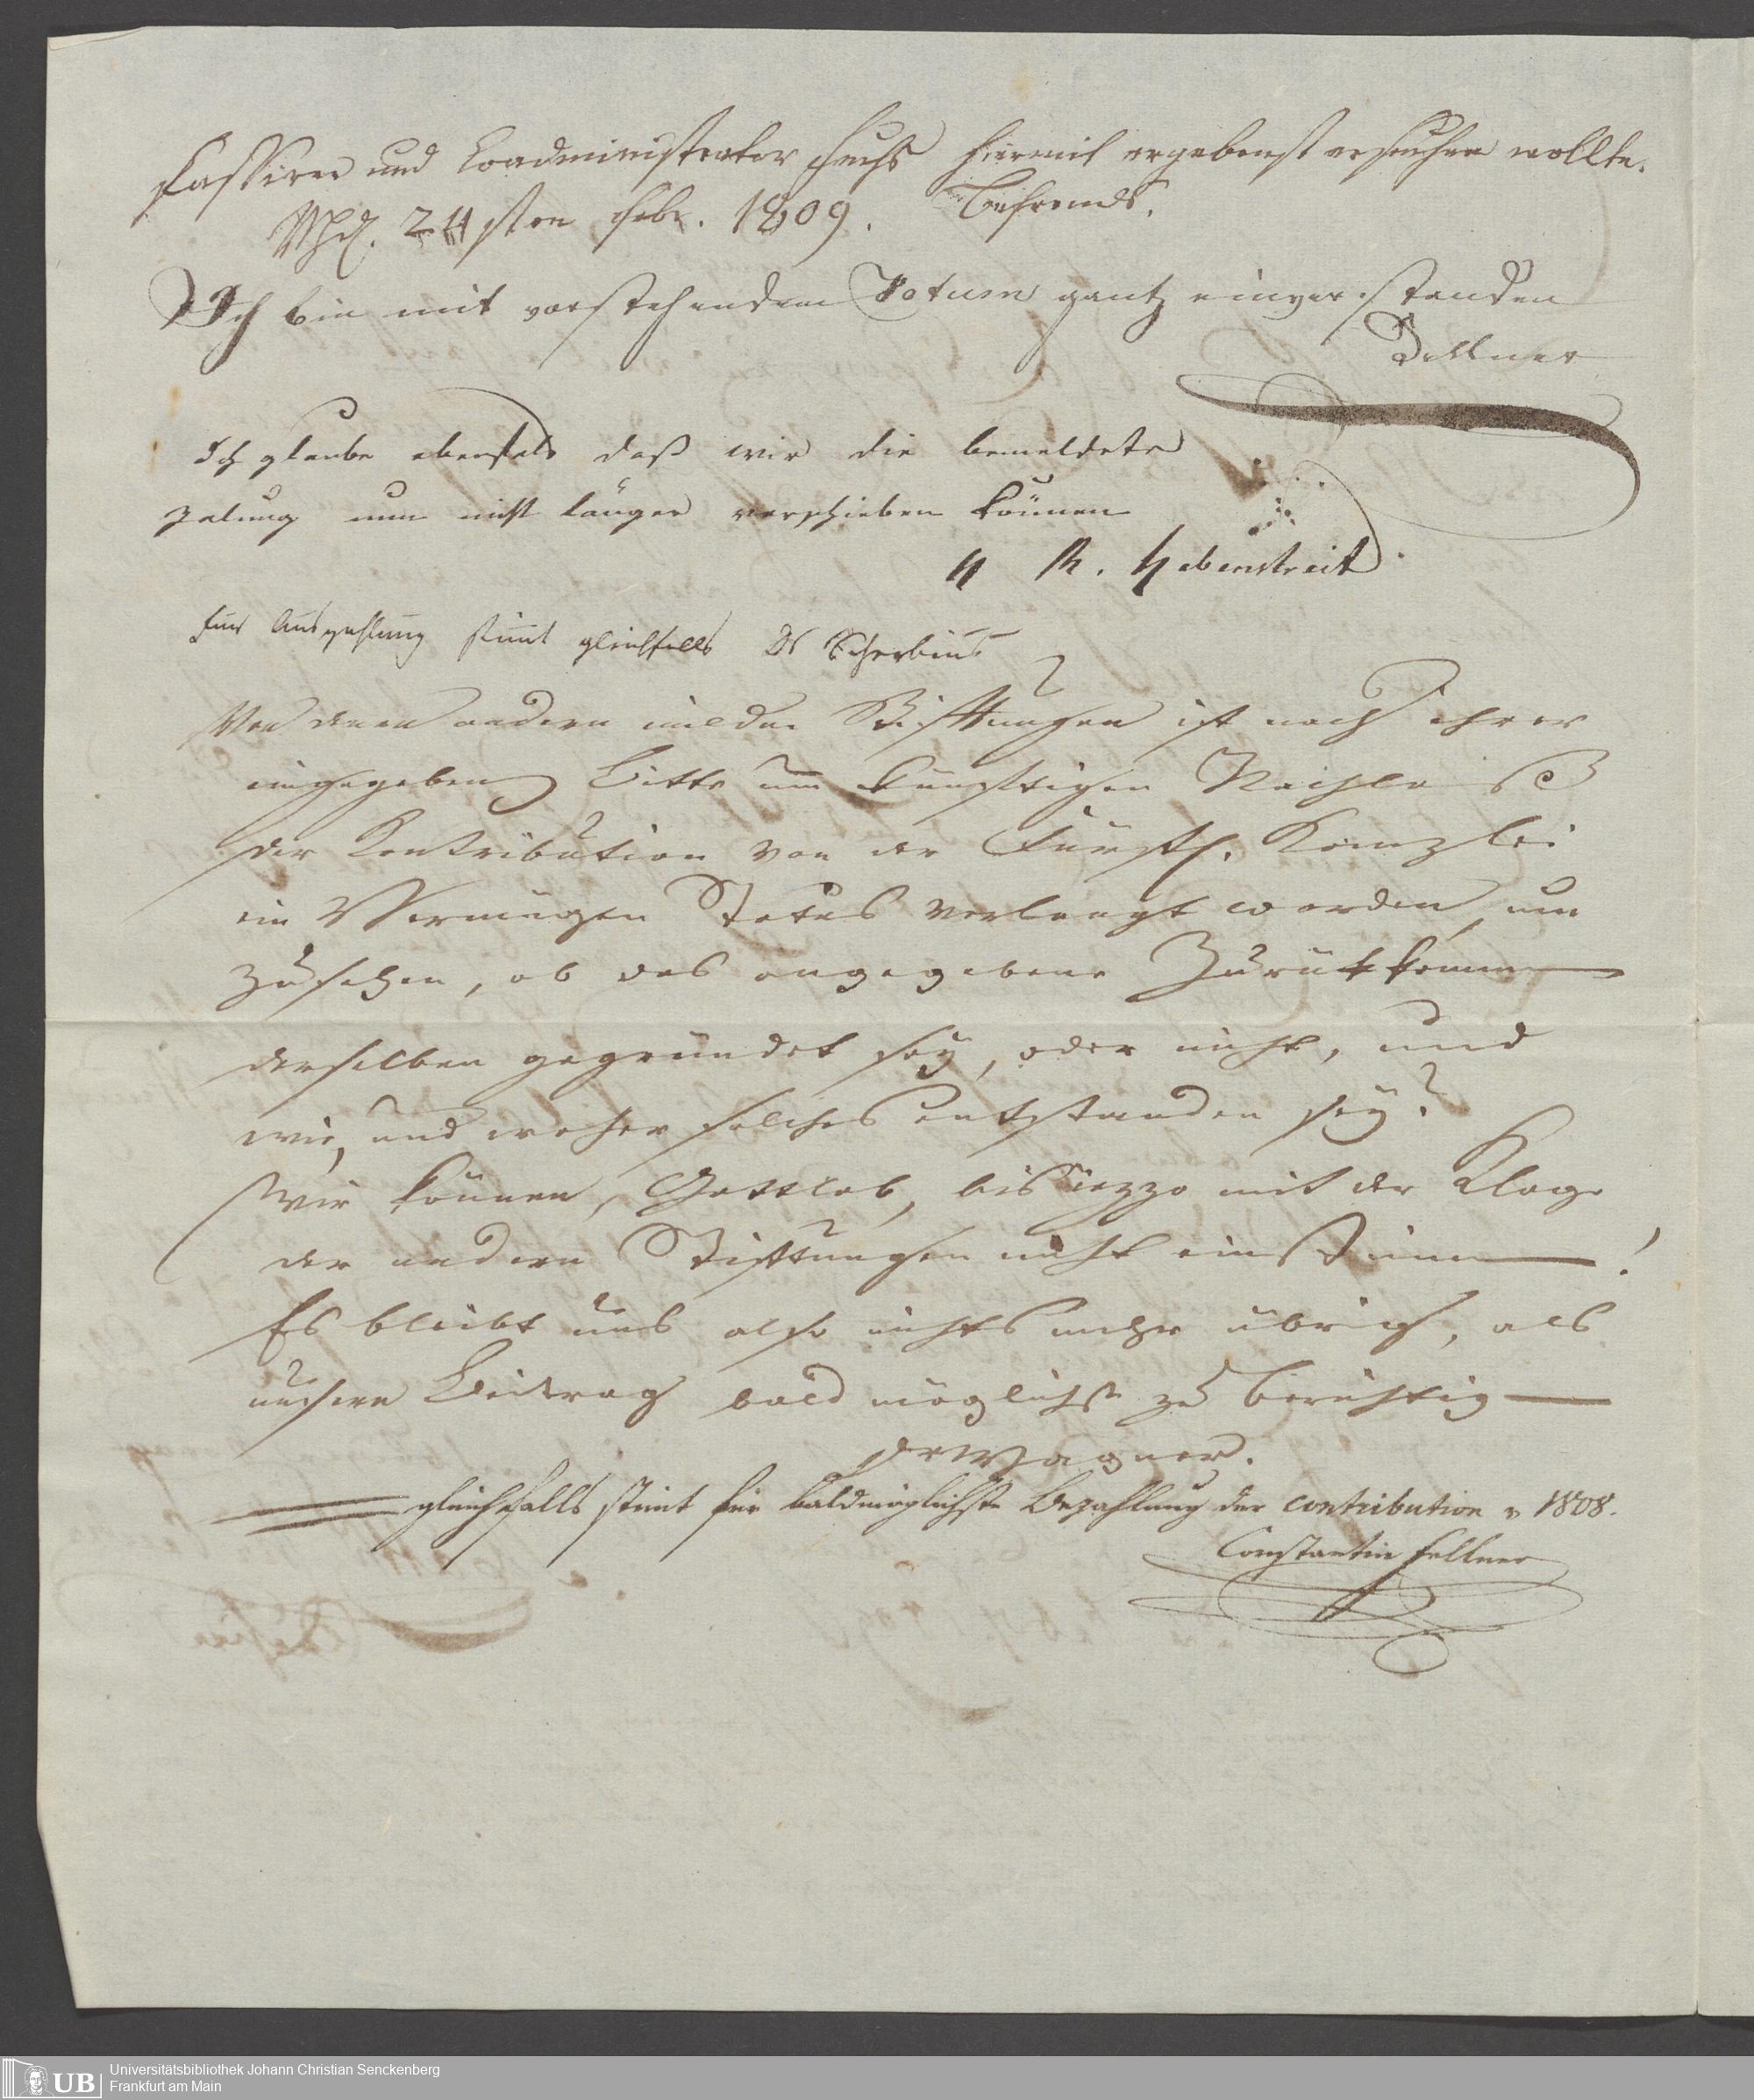 Cassirer und Coadministrator Fuchs hiermit ergebenst ersuchen wollte.
24sten Febr. 1809. Behrends.
Ich bin mit vorstehendem Votum gantz einverstanden
Dellner
Ich glaube ebenfals daß wir die bemeldete
zalung nun nicht länger verschieben können
H R. Hebenstreit
Fur Auszahlung stimt gleichfalls Dr Scherbius
Von denen andern milden Stifftungen ist nach ihrer
eingegebenen Bitte um künfftigen Nachlaß
der Contribution von der Fürstl. Kanzlei
ein Vermögen Status verlangt worden, um
zu sehen, ob das angegebene Zurükkommen
derselben gegründet sey, oder nicht, und
wie, und woher solches entstanden sey?
Wir können, Gottlob, bis iezzo mit der Klage
der andern Stifftungen nicht einstimmen!
Es bleibt uns also nichts mehr übrig, als
unsern Beitrag bald möglichst zu berichtigen
Dr Wagner.
gleichfalls stimt für baldmöglichste Bezahlung der Contribution v 1808.
Constantin Fellner
UB Universitätsbibliothek Johann Christian Senckenberg
Frankfurt am Main